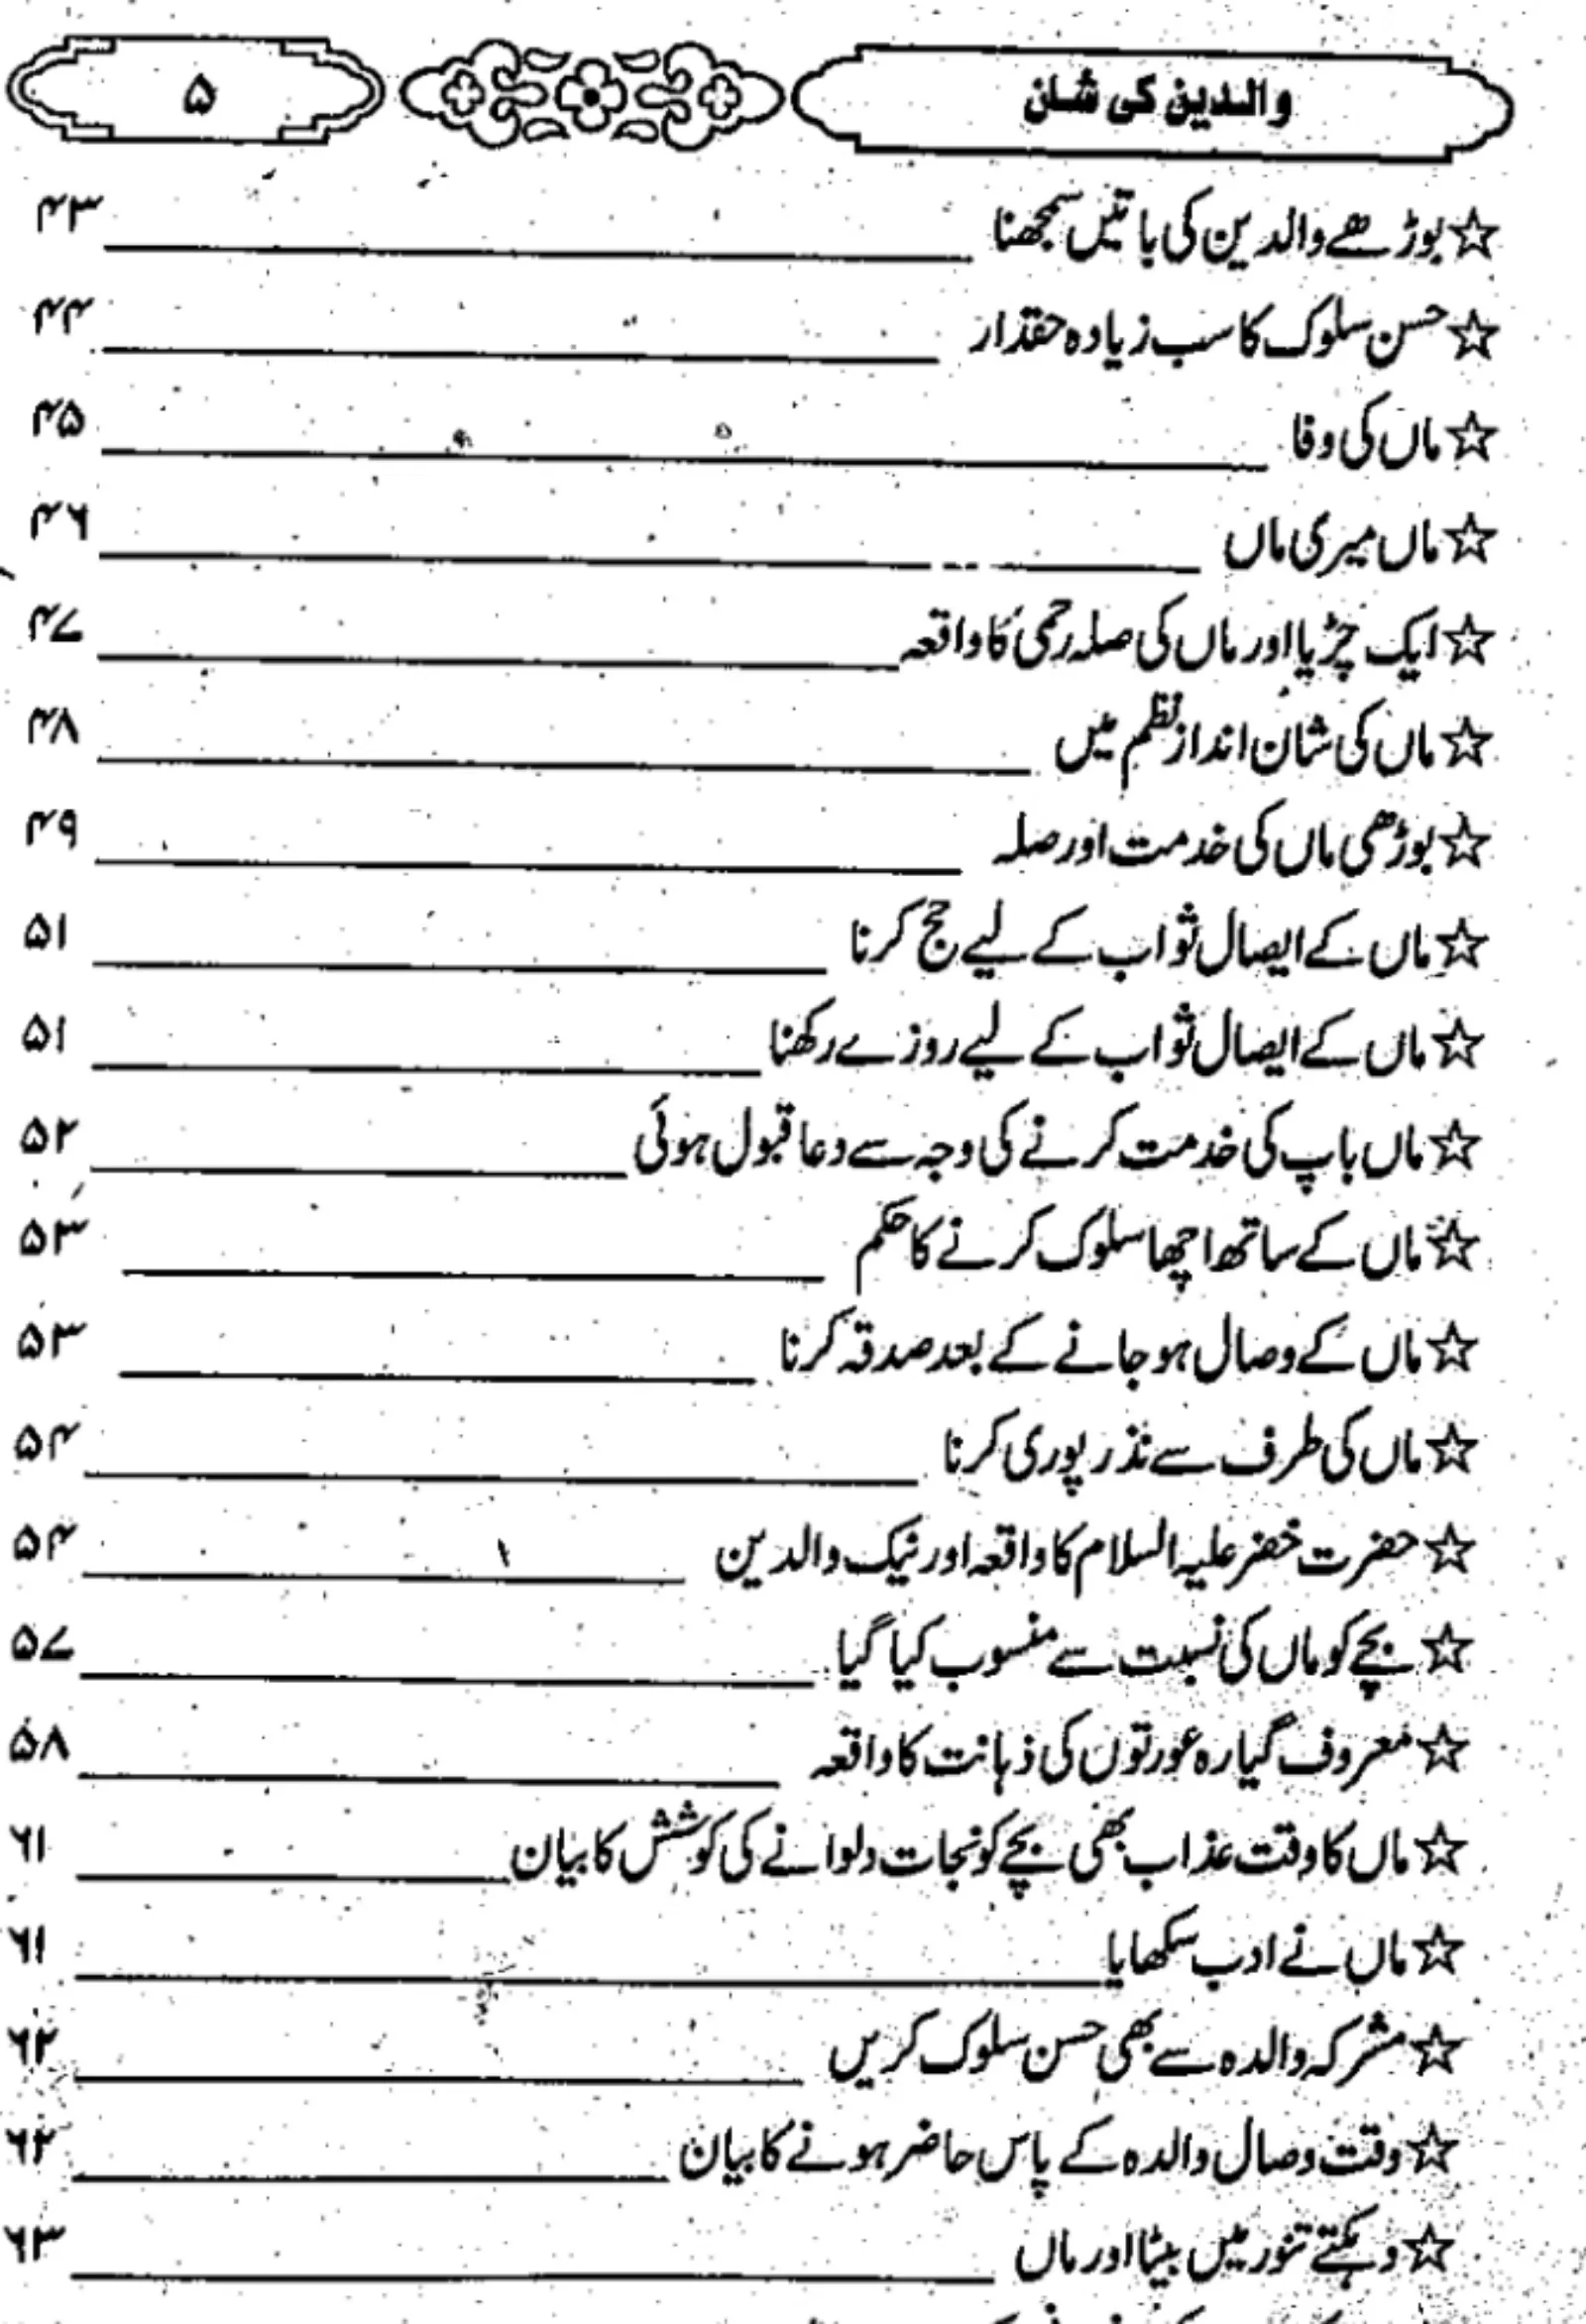 والدین کی شان ۵
☆ بوڑھے والدین کی باتیں سمجھنا ۴۳
☆ حسن سلوک کا سب زیادہ حقدار ۴۴
☆ ماں کی وفا ۴۵
☆ ماں میری ماں ۴۶
☆ ایک چڑیا اور ماں کی صلہ رحمی کا واقعہ ۴۷
☆ ماں کی شان انداز نظم میں ۴۸
☆ بوڑھی ماں کی خدمت اور صلہ ۴۹
☆ ماں کے ایصال ثواب کے لیے حج کرنا ۵۱
☆ ماں کے ایصال ثواب کے لیے روزے رکھنا ۵۱
☆ ماں باپ کی خدمت کرنے کی وجہ سے دعا قبول ہوئی ۵۲
☆ ماں کے ساتھ اچھا سلوک کرنے کا حکم ۵۳
☆ ماں کے وصال ہو جانے کے بعد صدقہ کرنا ۵۳
☆ ماں کی طرف سے نذر پوری کرنا ۵۴
☆ حضرت خضر علیہ السلام کا واقعہ اور نیک والدین ۵۴
☆ بچے کو ماں کی نسبت سے منسوب کیا گیا ۵۷
☆ معروف گیارہ عورتوں کی ذہانت کا واقعہ ۵۸
☆ ماں کا وقت عذاب بھی بچے کو نجات دلوانے کی کوشش کا بیان ۶۱
☆ ماں نے ادب سکھایا ۶۱
☆ مشرکہ والدہ سے بھی حسن سلوک کریں ۶۲
☆ وقت وصال والدہ کے پاس حاضر ہونے کا بیان ۶۲
☆ دہکتے تنور میں بیٹا اور ماں ۶۳